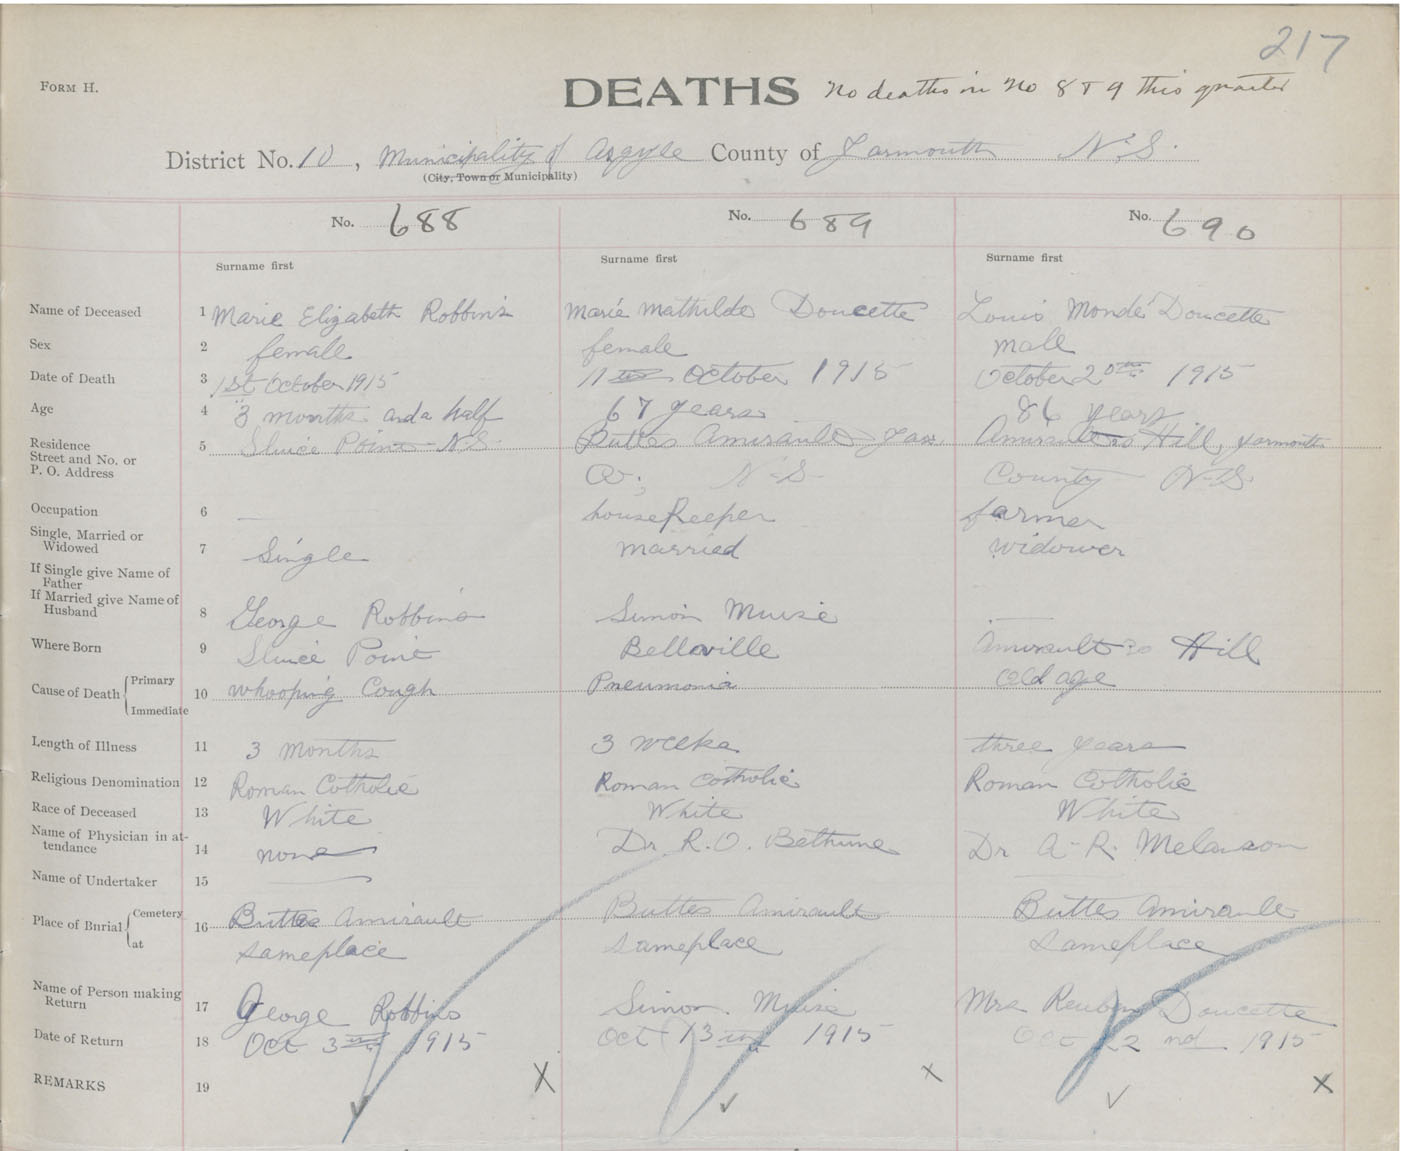 217
FORM H.
DEATHS No deaths in No 8 & 9 this quarter
District No. 10, Municipality of Argyle County of Yarmouth N.S.
(City, Town or Municipality)
No. 688 No. 689 No. 690
Surname first Surname first Surname first
Name of Deceased 1 Marie Elizabeth Robbins Marie Mathilde Doucette Louis Mondé Doucette
Sex 2 female female male
Date of Death 3 1st October 1915 11th October 1915 October 20th 1915
Age 4 3 months and a half 67 years 86 years
Residence Street and No. or P. O. Address 5 Sluice Point N.S. Buttes Amirault Yar. Amiraults Hill, Yarmouth
Co; N-S County N-S.
Occupation 6 housekeeper farmer
Single, Married or Widowed 7 Single married widower
If Single give Name of Father
If Married give Name of Husband 8 George Robbins Simon Muise
Where Born 9 Sluice Point Belleville Amiraults Hill
Cause of Death Primary Immediate 10 whooping Cough Pneumonia Old age
Length of Illness 11 3 months 3 weeks three years
Religious Denomination 12 Roman Catholic Roman Catholic Roman Catholic
Race of Deceased 13 White White White
Name of Physician in attendance 14 none Dr R. O. Bethune Dr A-R. Melanson
Name of Undertaker 15
Place of Burial Cemetery at 16 Buttes Amirault Buttes Amirault Buttes Amirault
sameplace sameplace sameplace
Name of Person making Return 17 George Robbins Simon Muise Mrs Reuben Doucette
Date of Return 18 Oct 3rd 1915 Oct 13th 1915 Oct 22nd 1915
REMARKS 19 X X X